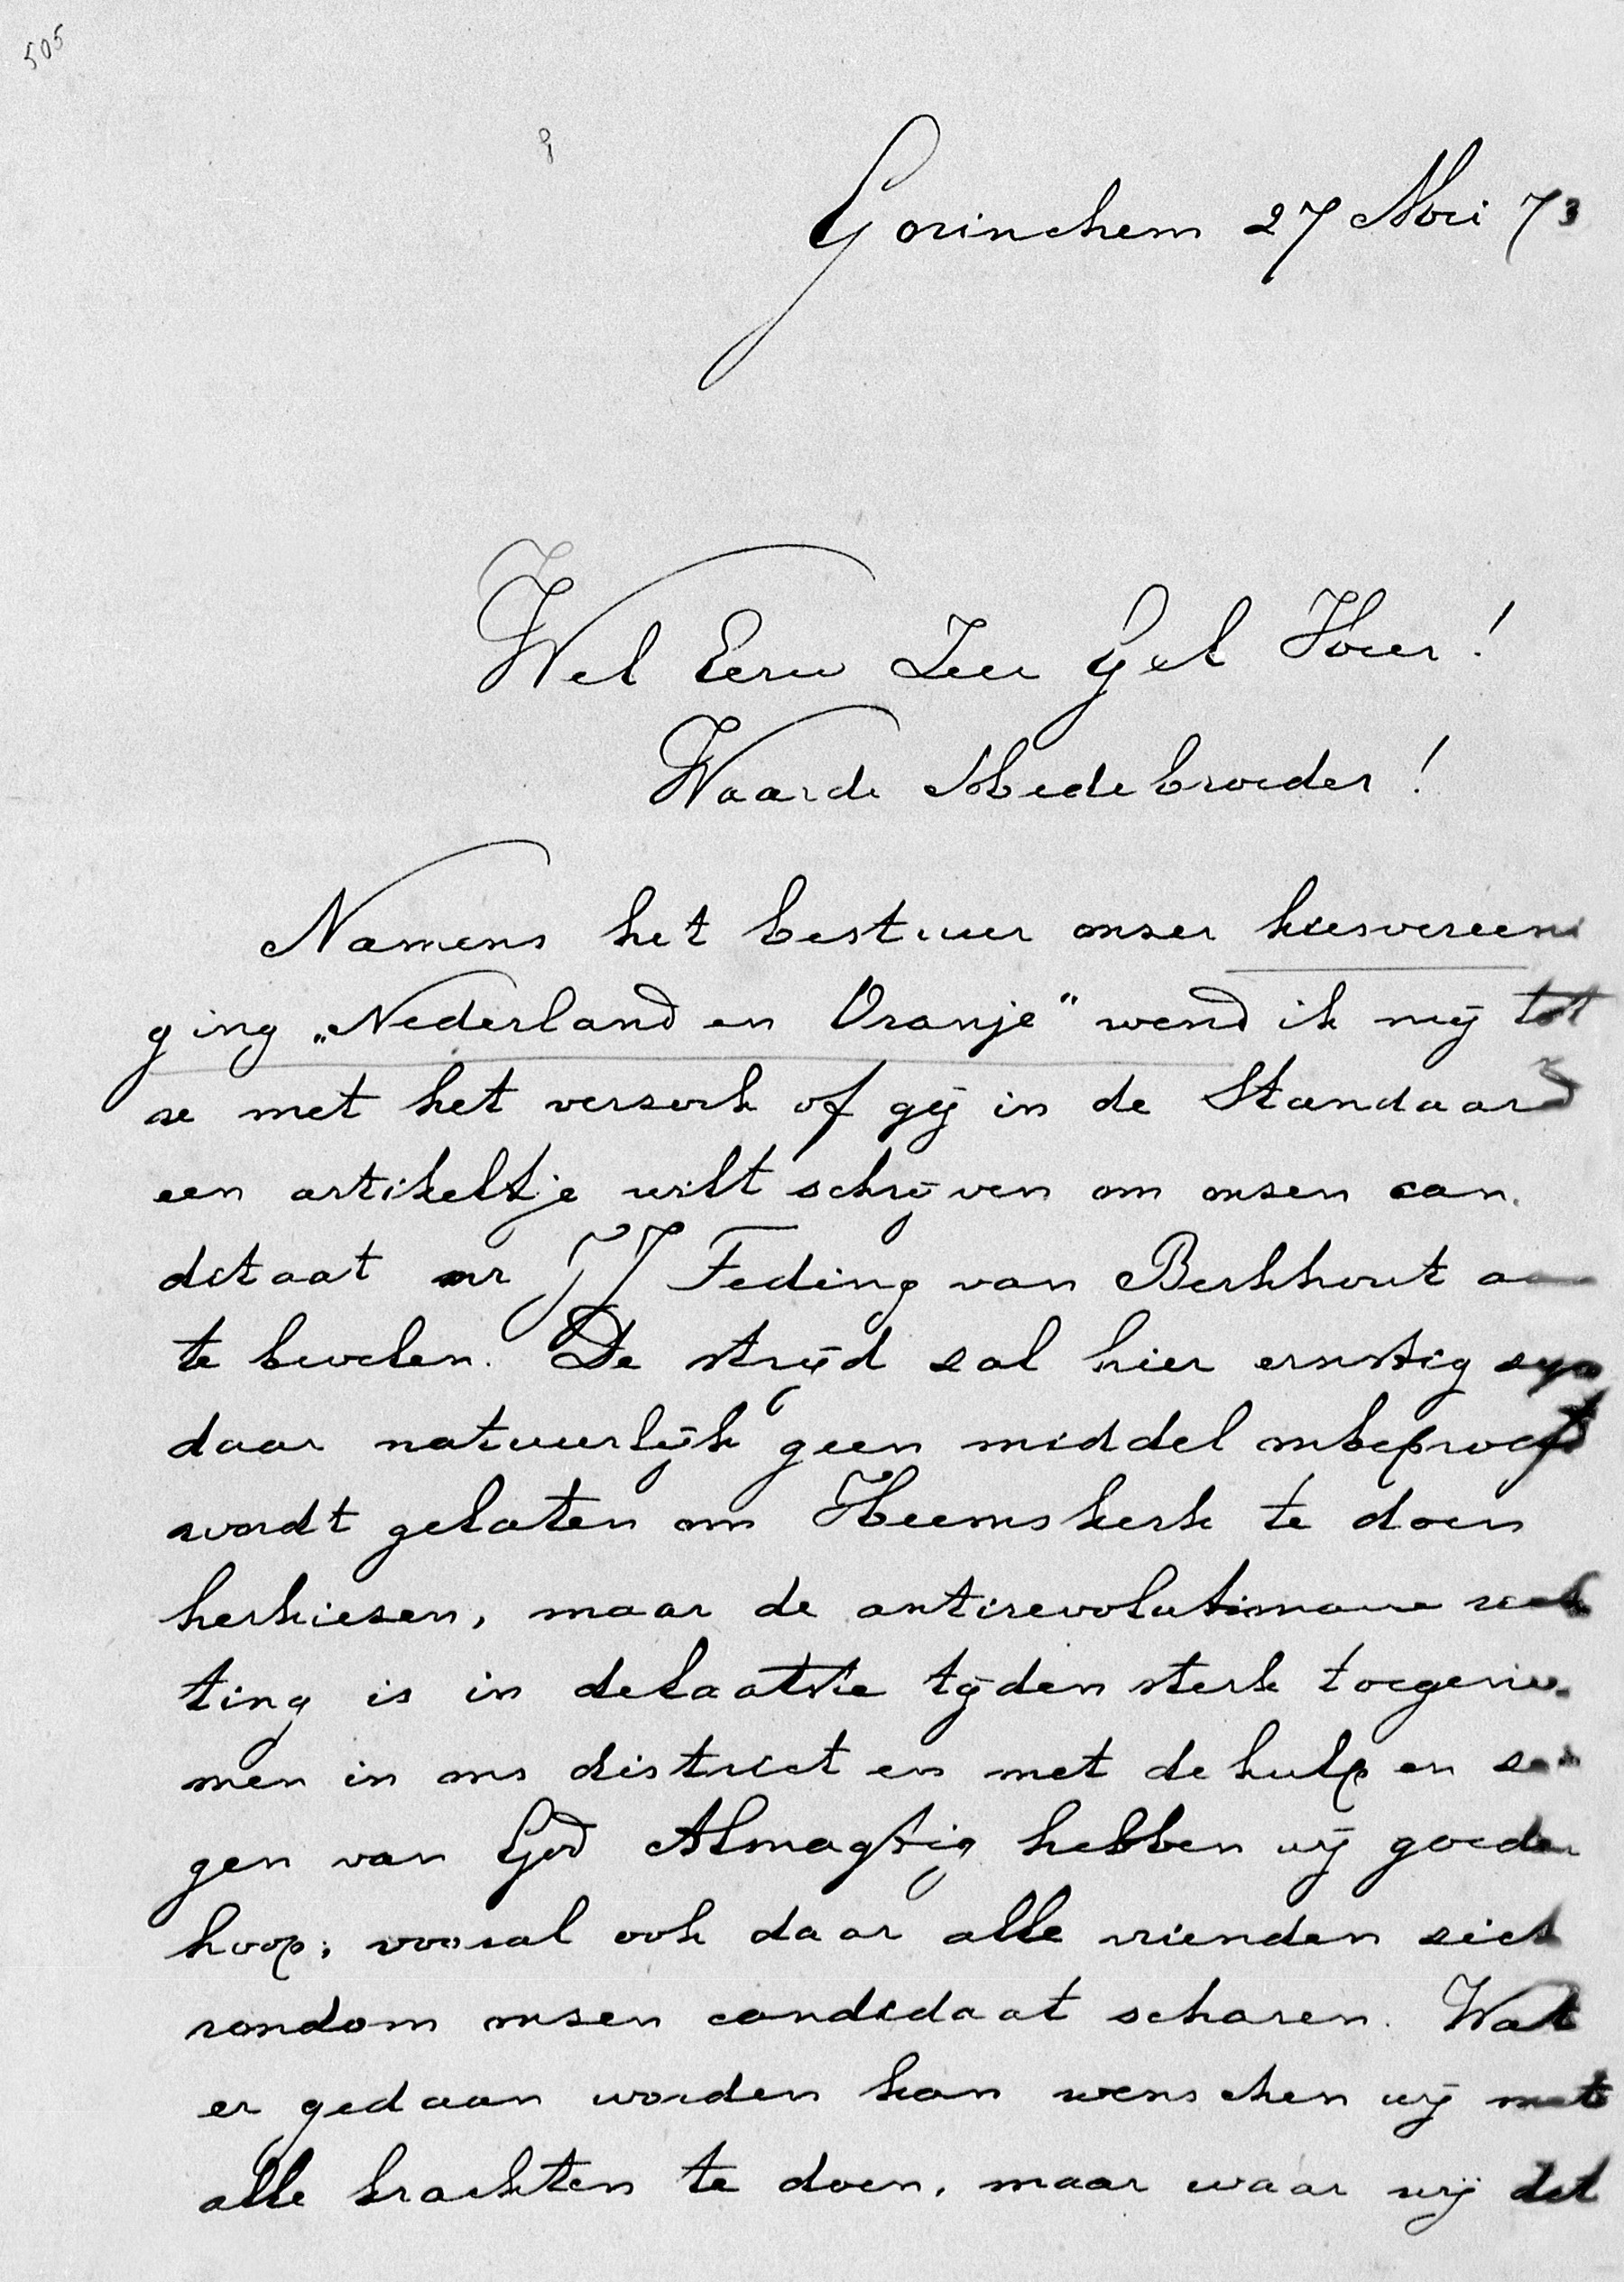 505
Gorinchem 27 Mei 73
Wel Eerw Zeer Gel Heer!
Waarde Medebroeder!
Namens het bestuur onzer kiesvereeni
ging „Nederland en Oranje" wend ik mij tot
se met het verzoek of gij in de Standaard
een artikeltje wilt schrijven om onzen can.
didaat mr JJ Teding van Berkhout aan
te bevelen. De strijd zal hier ernstig zijn
daar natuurlijk geen middel onbeproefd
wordt gelaten om Heemskerk te doen
herkiezen, maar de antirevolutionaire rich
ting is in de laatste tijden sterk toegeno.
men in ons district en met de hulp en ze
gen van God Almagtig hebben wij goeden
hoop; vooral ook daar alle vrienden zich
rondom onzen candidaat scharen. Wat
er gedaan worden kan wenschen wij met
alle krachten te doen, maar waar wij dit